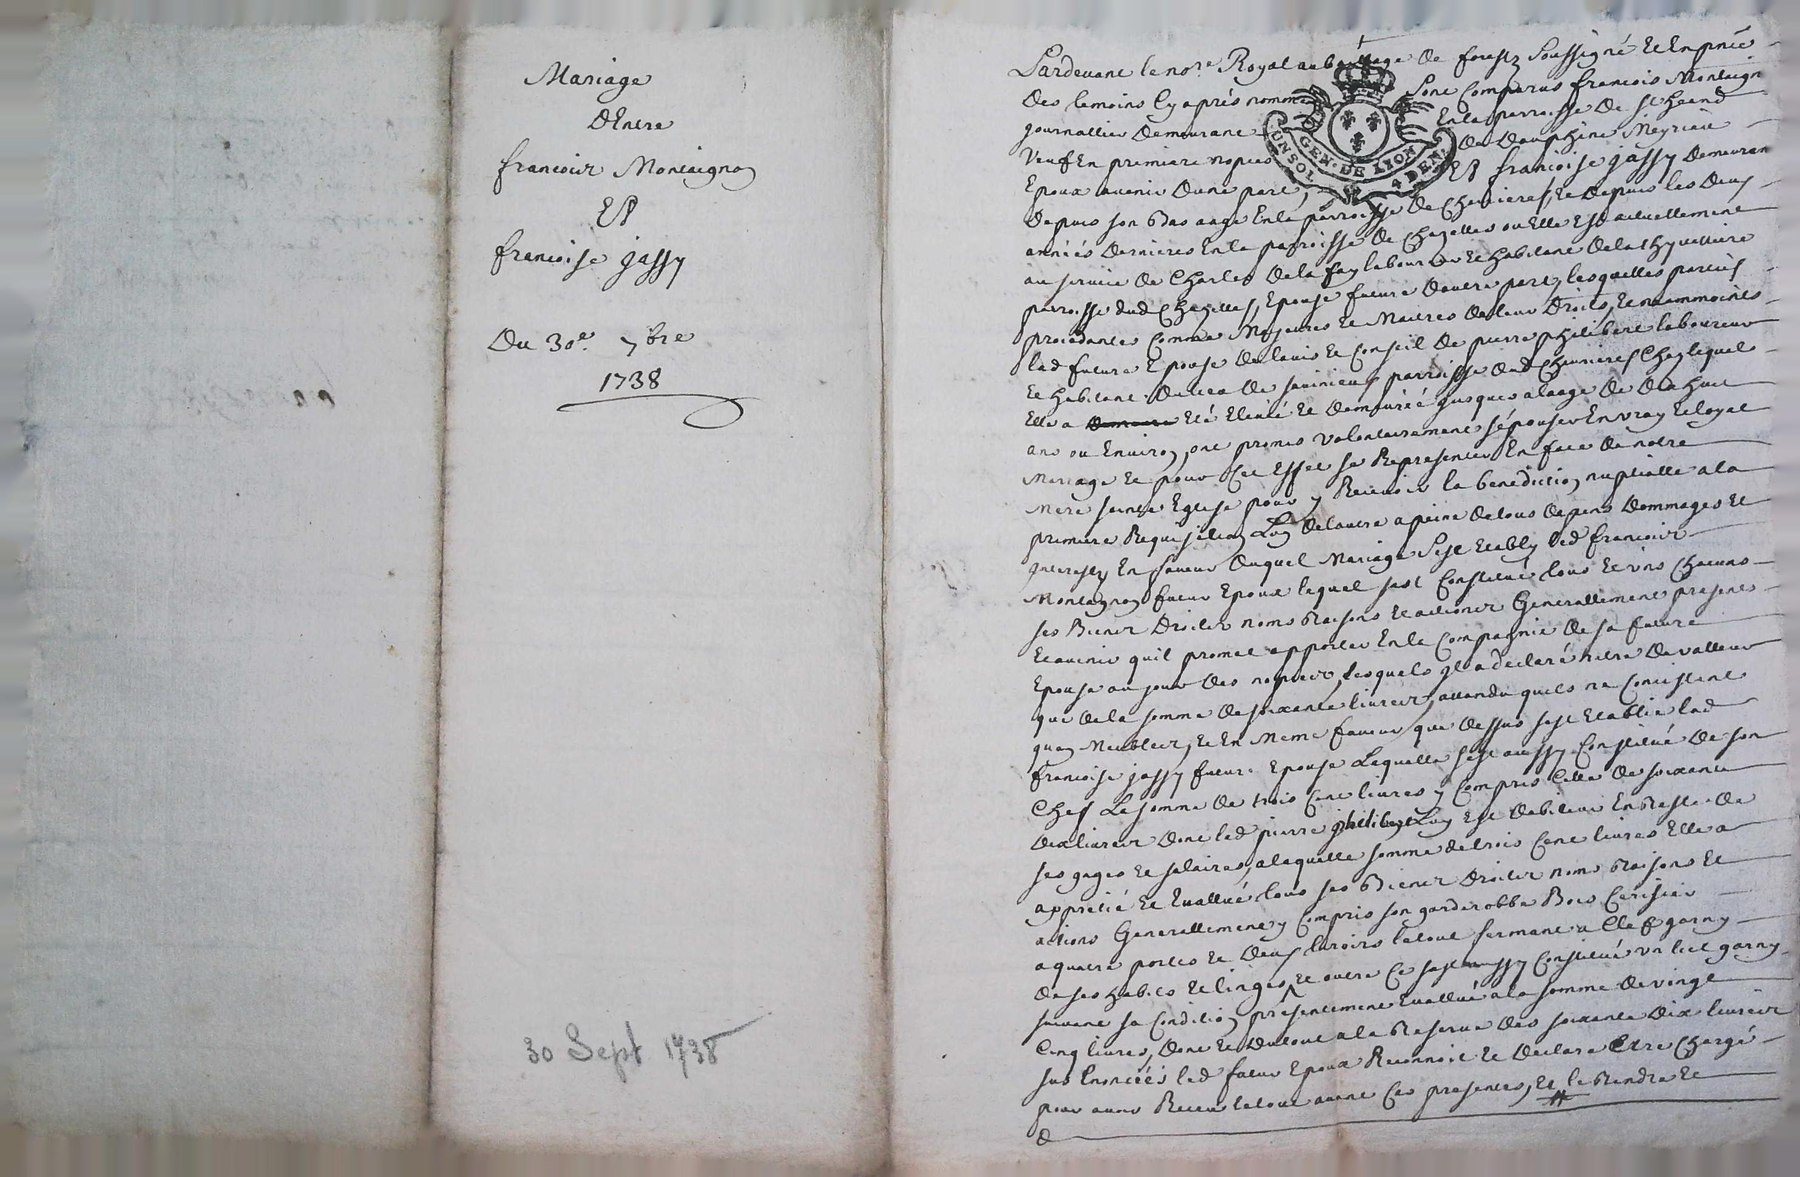 Mariage
DEntre
francois Montaignon
Et
francoise jassy
Du 30e. 7bre
1738
30 Sept 1738
GEN. DE LYON
UN SOL 4 DEN.
Pardevant le nore. Royal au bailliage de forestz soussigné Et En pnce
Des temoins Cy aprés nommés Sont Comparus francois Montaign
journallier Demeurant En la parroisse De st heand
Veuf En premiere nopces De Dauphine Meyrieu
Epoux avenir Dune part, Et francoise jassy Demeuran
Depuis son Bas aage En la parroisse De Chevrieres, Et Depuis les Deux
années Dernieres En la parroisse De Chazelles ou Elle Est actuellement
au service De Charles Dela fay laboureur Et habitant Dela
parroisse dud Chazelles, Epouse future Dautre part, lesquelles parties
procedantes Comme Majeures Et Maitres De leur Droits, Et neammoints
lad future Epouse De lavis Et Conseil De pierre philibert laboureur
Et habitant Du lieu De parroisse Dud Chevrieres Chez lequel
Elle a Eté Elevée Et Demeurée jusques a laage De Dixhuit
ans ou Environ, ont promis volontairement sépouser En vray Et loyal
Mariage Et pour Cet Effet se Representer En face De notre
Mere sainte Eglise pour y Recevoir la benediction nuptialle a la
premiere Requisition Lun De lautre a peine De tous Depens Dommages Et
interests En faveur Duquel Mariage Sest Etably led francois
Montagnon futur Epoux lequel sest Constitué tous Et uns Chacuns
ses Biens Droits noms Raisons Et actions Generallement presents
Et avenir quil promet apporter En la Compagnie De sa future
Epouse au jour Des nopces, lesquels il a declaré nétre De valleur
que De la somme De soixante livres, attendu quils ne Consistent
quen Meubles, Et En Meme faveur que Dessus sest Etablie lad
francoise jassy future Epouse Laquelle sest aussy Constitué De son
Chef La somme De trois Cent livres y Compris Celle De soixante
Dix livres Dont led pierre philibert Luy Est Debiteur En Reste De
ses gages Et salaires, a laquelle somme de trois Cent livres Elle a
apprecié Et Evallué tous ses Biens Droits noms Raisons Et
actions Generallement y Compris son garderobbe Bois Cerisier
a quatre portes Et Deux tiroirs le tout fermant a Clef garny
De ses habits Et linges, Et outre Ce sest aussy Constitué un lict garny
suivant sa Condition presentement Evallué a la somme De vingt
Cinq livres, Dont Et Du tout a la Reserve Des soixante Dix livres
sus Enoncées led futur Epoux Reconnoit Et Declare Etre Chargé
pour avoir Receu le tout avant Ces presentes, Et le Rendre Et